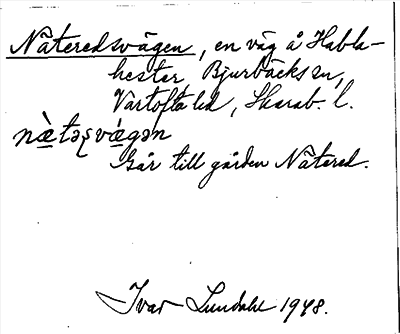 Näteredsvägen, en väg å Habla-
hester, Bjurbäcks sn,
Vartofta hd, Skarab. l.
nὰ̱təʂvά̱gən
Går till gården Nätered.
Ivar Lundahl 1948.